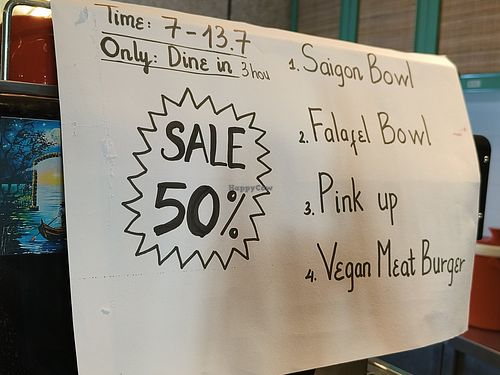 Time: 7-13.7
Only: Dine in 3 hou
SALE
50%
1. Saigon Bowl
2. Falafel Bowl
3. Pink up
4. Vegan Meat Burger
HappyCow